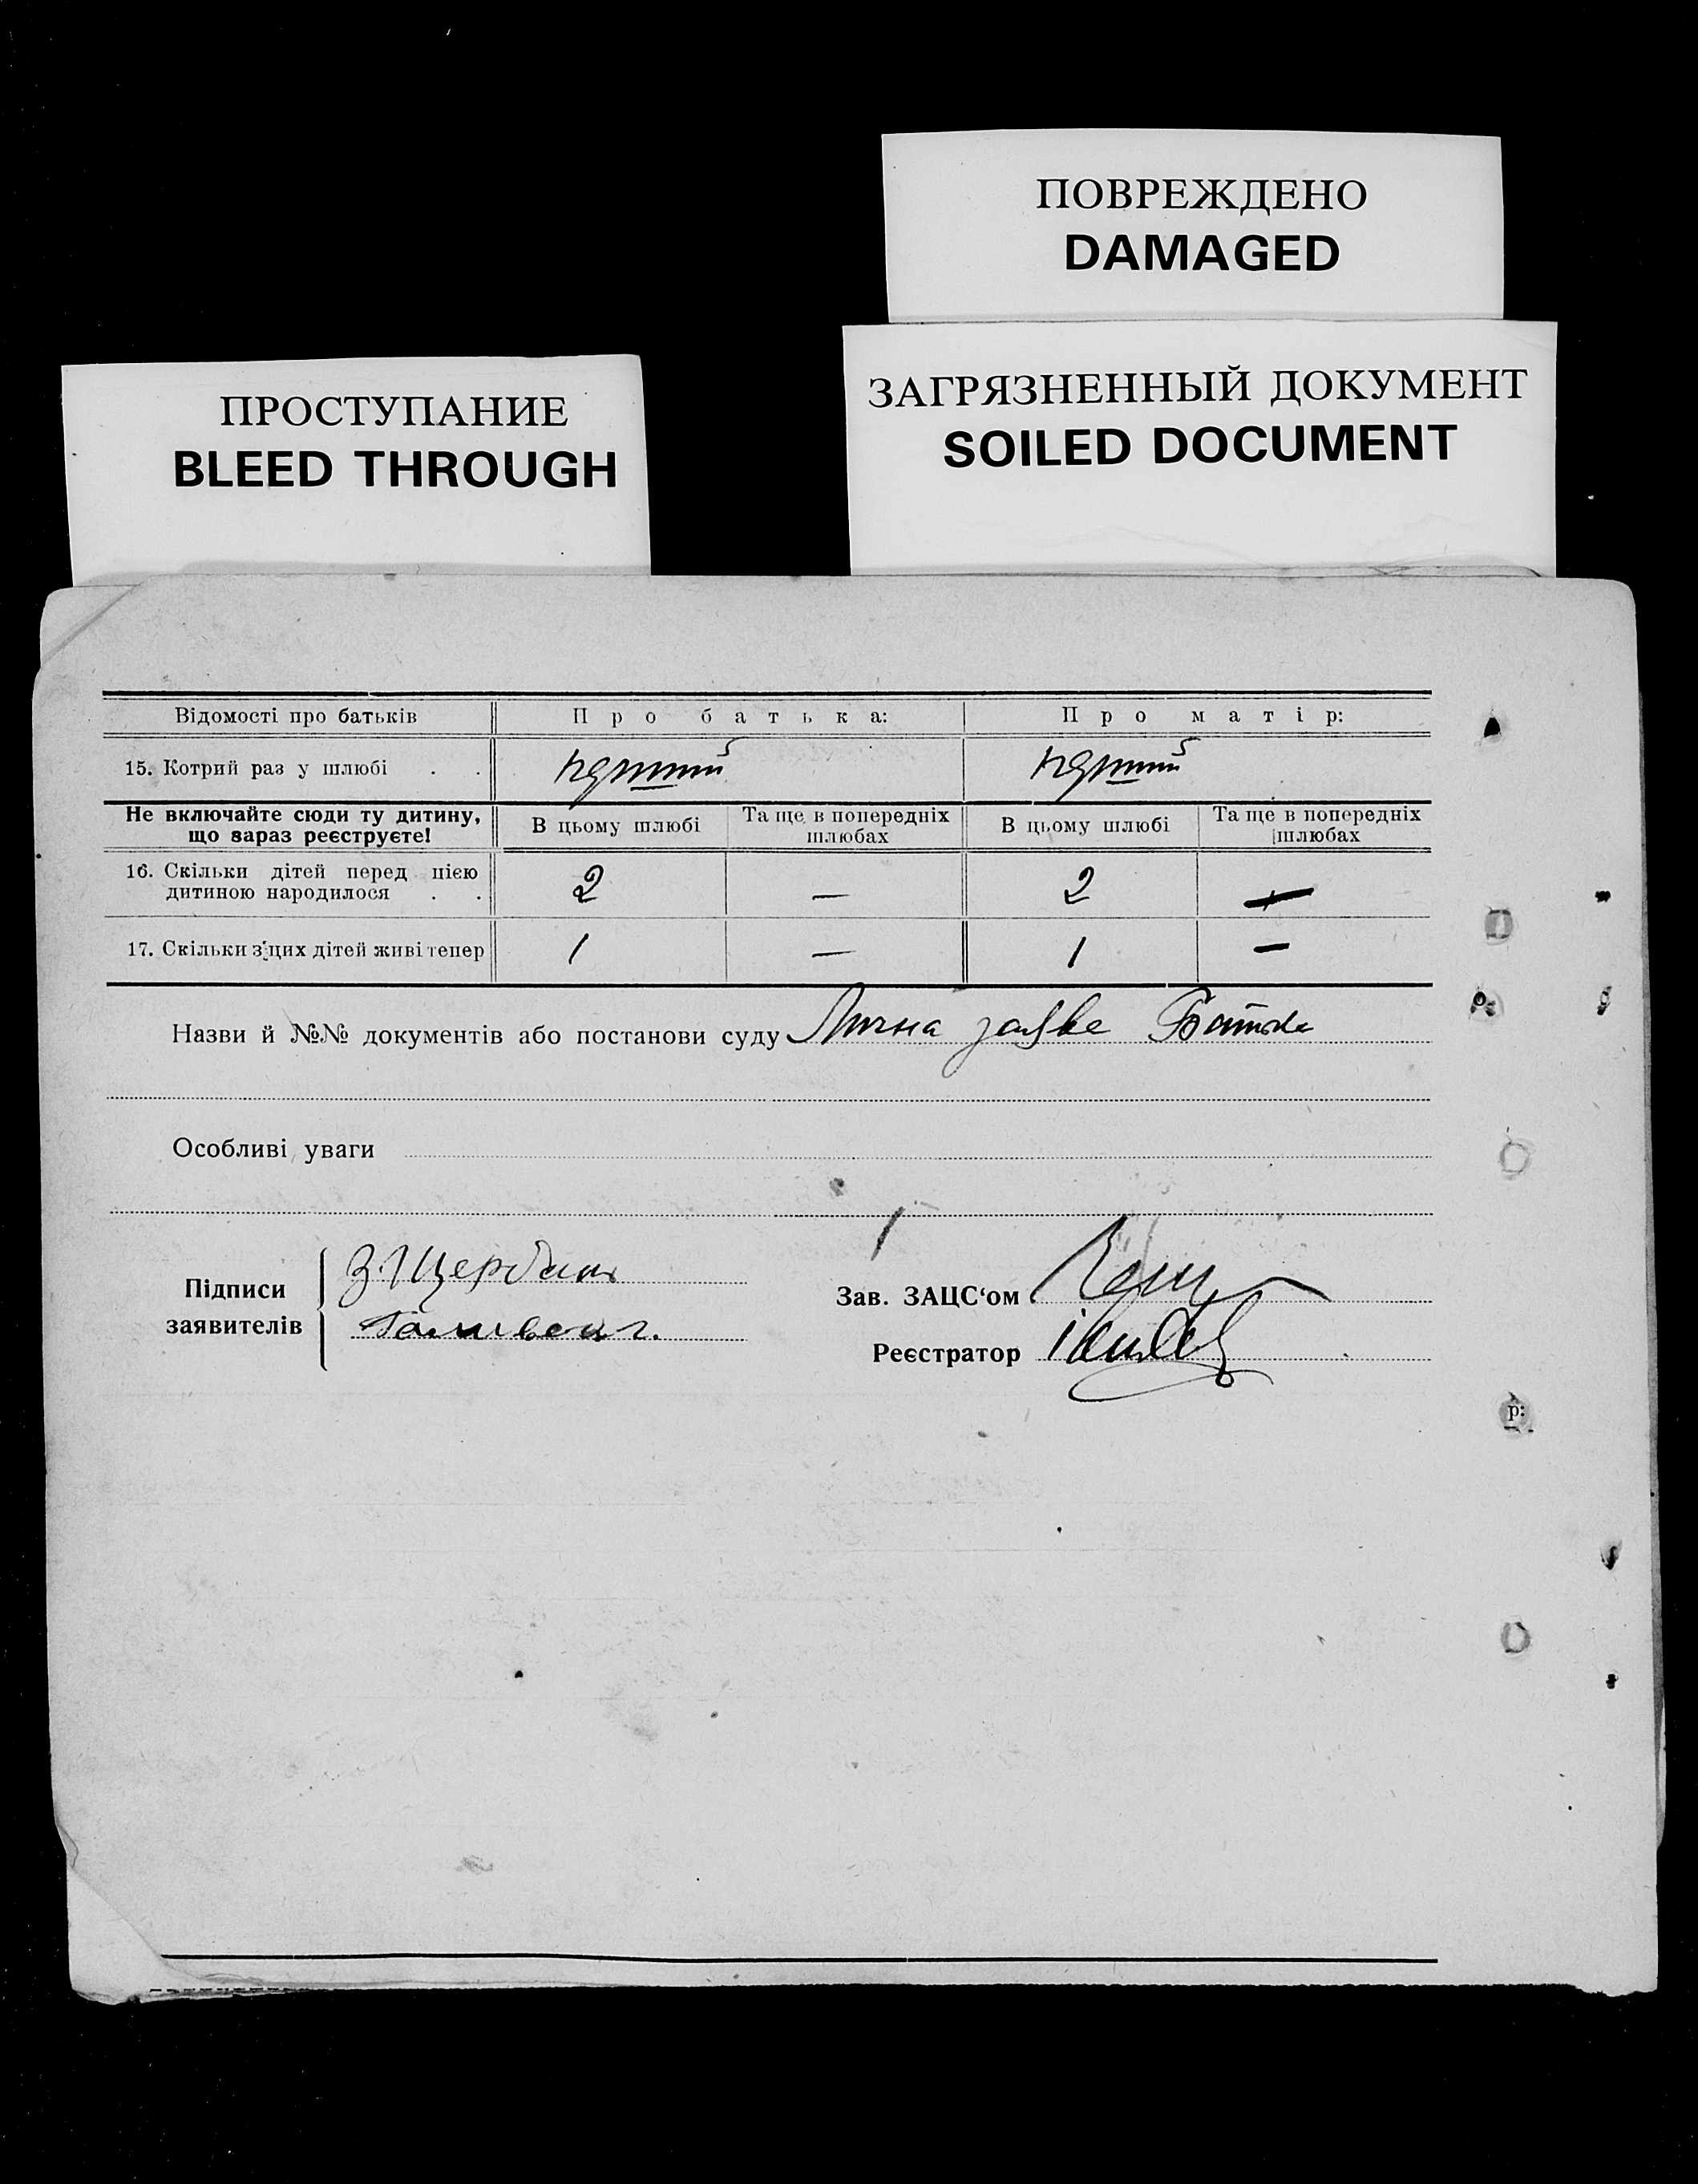 ПОВРЕЖДЕНО
DAMAGED
ЗАГРЯЗНЕННЫЙ ДОКУМЕНТ
SOILED DOCUMENT
ПРОСТУПАНИЕ
BLEED THROUGH
Відомості про батьків Про батька: Про матір:
15. Котрий раз у шлюбі . . перший перший
Не включайте сюди ту дитину, що зараз реєструєте! В цьому шлюбі Та ще в попередніх шлюбах В цьому шлюбі Та ще в попередніх шлюбах
16. Скільки дітей перед цією дитиною народилося . . 2 — 2 —
17. Скільки з цих дітей живі тепер 1 — 1 —
Назви й №№ документів або постанови суду Лична заява Батька
Особливі уваги
Підписи заявителів
З. Щербан
Зав. ЗАЦС‘ом
Реєстратор
р: